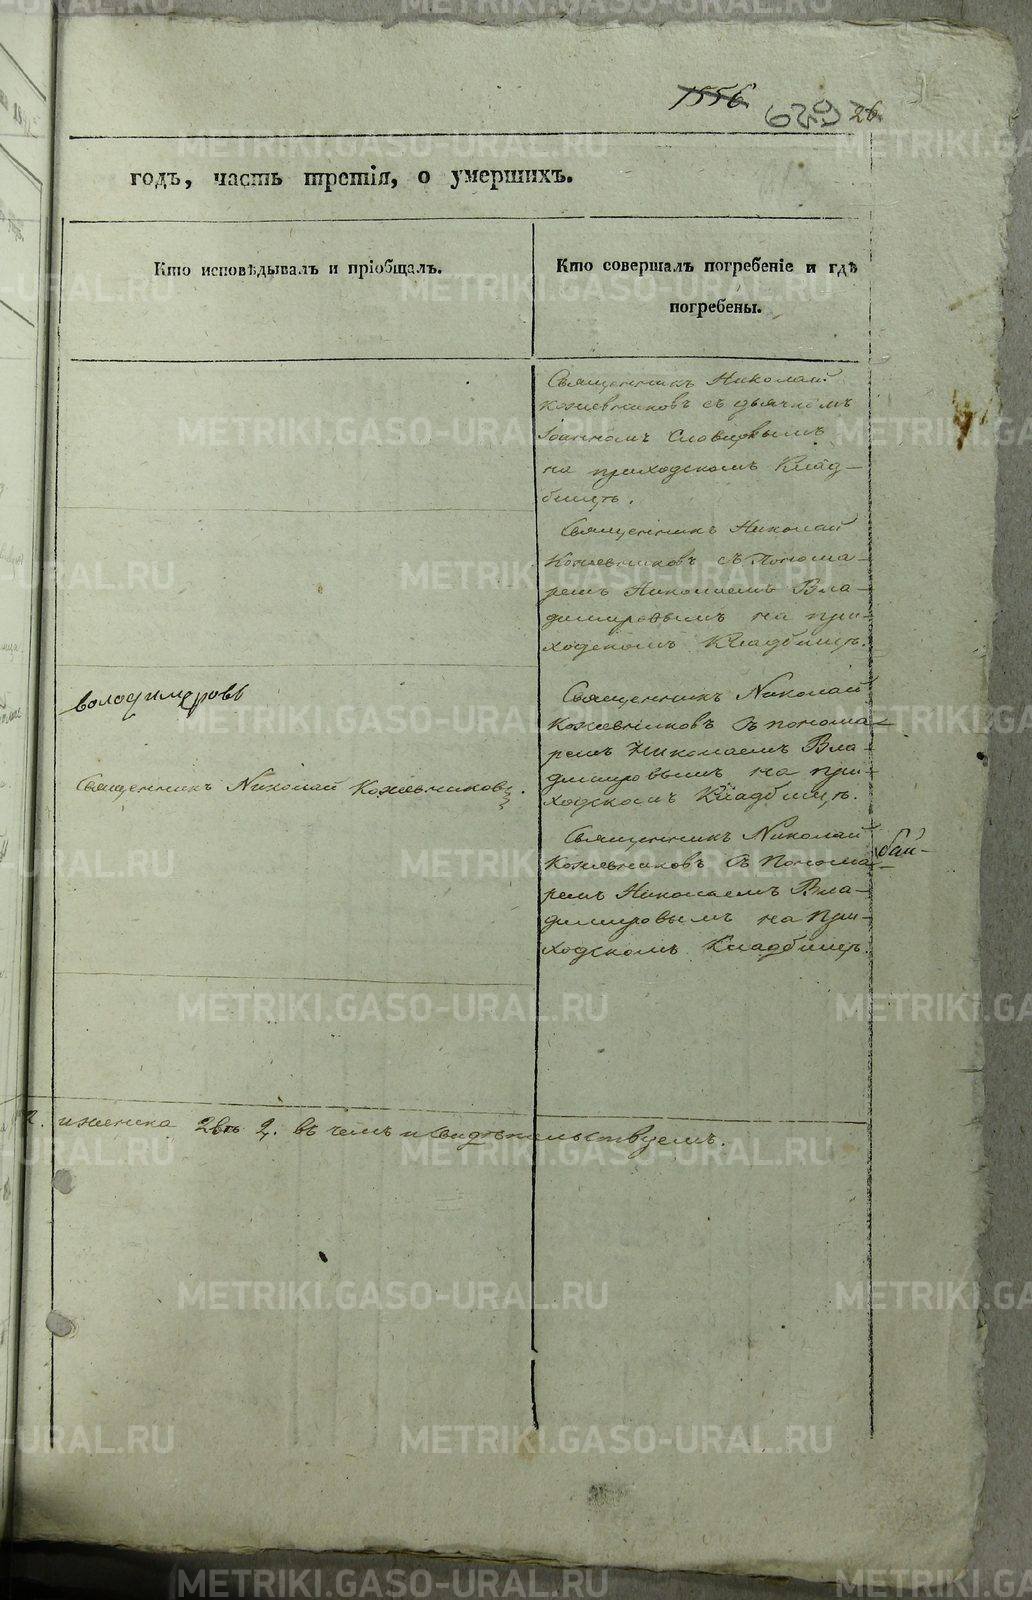 1556
629 26
годъ, часть третія, о умершихъ.
Кто исповѣдывалъ и пріобщалъ.
Кто совершалъ погребеніе и гдѣ
погребены.
Священникъ Николай
Кожевниковъ съ дьячкомъ
Іоанномъ Словцовымъ
на приходскомъ Клад-
бищѣ.
Священникъ Николай
Кожевниковъ съ Понома-
ремъ Николаемъ Вла-
димировымъ на при-
ходскомъ Кладбищѣ.
володимеровъ
Священникъ Николай Кожевниковъ.
Священникъ Николай
Кожевниковъ съ понома-
ремъ Николаемъ Вла-
димировымъ на при-
ходскомъ Кладбищѣ.
Священникъ Николай
Кожевниковъ съ Понома-
ремъ Николаемъ Вла-
димировымъ на При-
ходскомъ Кладбищѣ.
въ чемъ и свидѣтельствуемъ.
METRIKI.GASO-URAL.RU